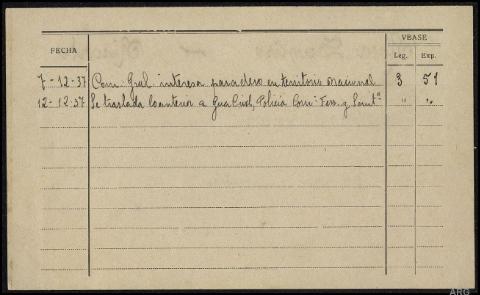 VEASE
FECHA
Leg. Exp.
7-12-37 Com. Gral. interesa paradero en territorio nacional 3 51
12-12-37 Se traslada lo anterior a Gua Civil, Policia Com. y " "
ARG